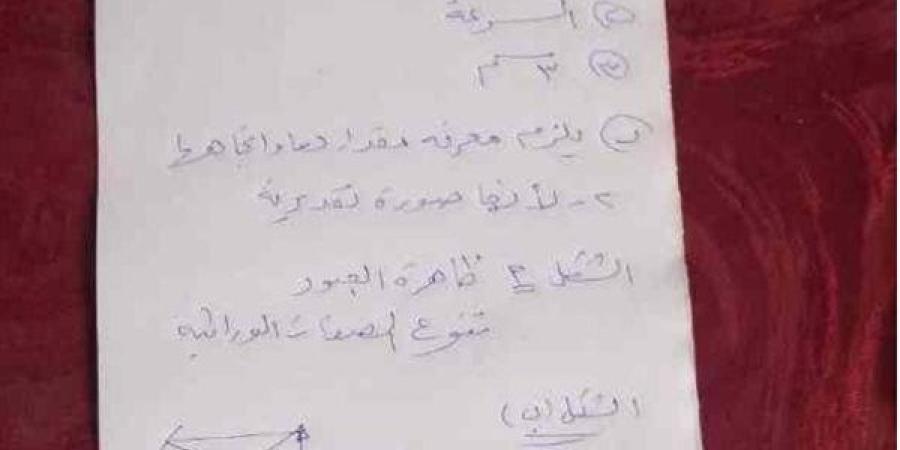 ② السرعة
③ ٣ سم
د) يلزم معرفة مقدارهما واتجاهها
٢- لأنها صورة تقديرية
الشكل ٢ ظاهرة العبور
تنوع الصفات الوراثية
الشكل (ب)